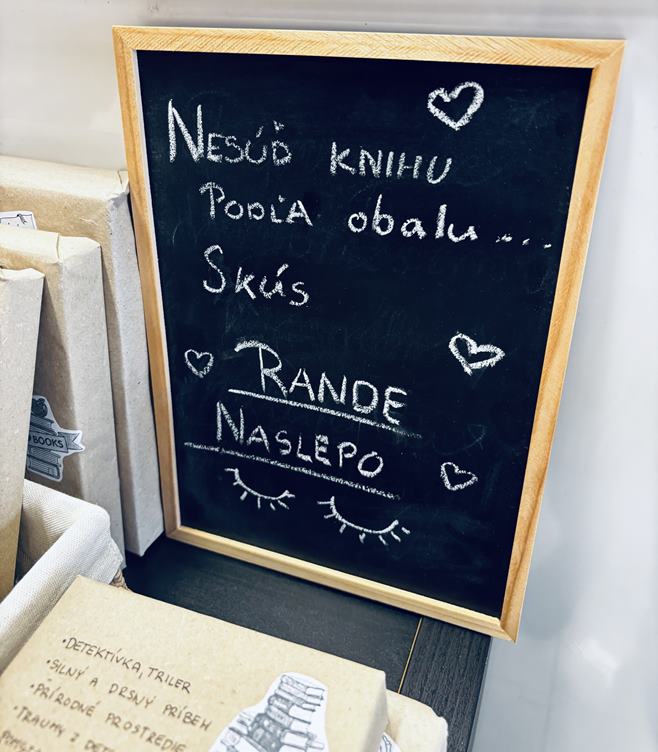 NESÚĎ KNIHU
PODĽA obalu...
Skús
RANDE
NASLEPO
BOOKS
•DETEKTÍVKA, TRILER
•SILNÝ A DRSNÝ PRÍBEH
•PRÍRODNÉ PROSTREDIE
•TRAUMY Z